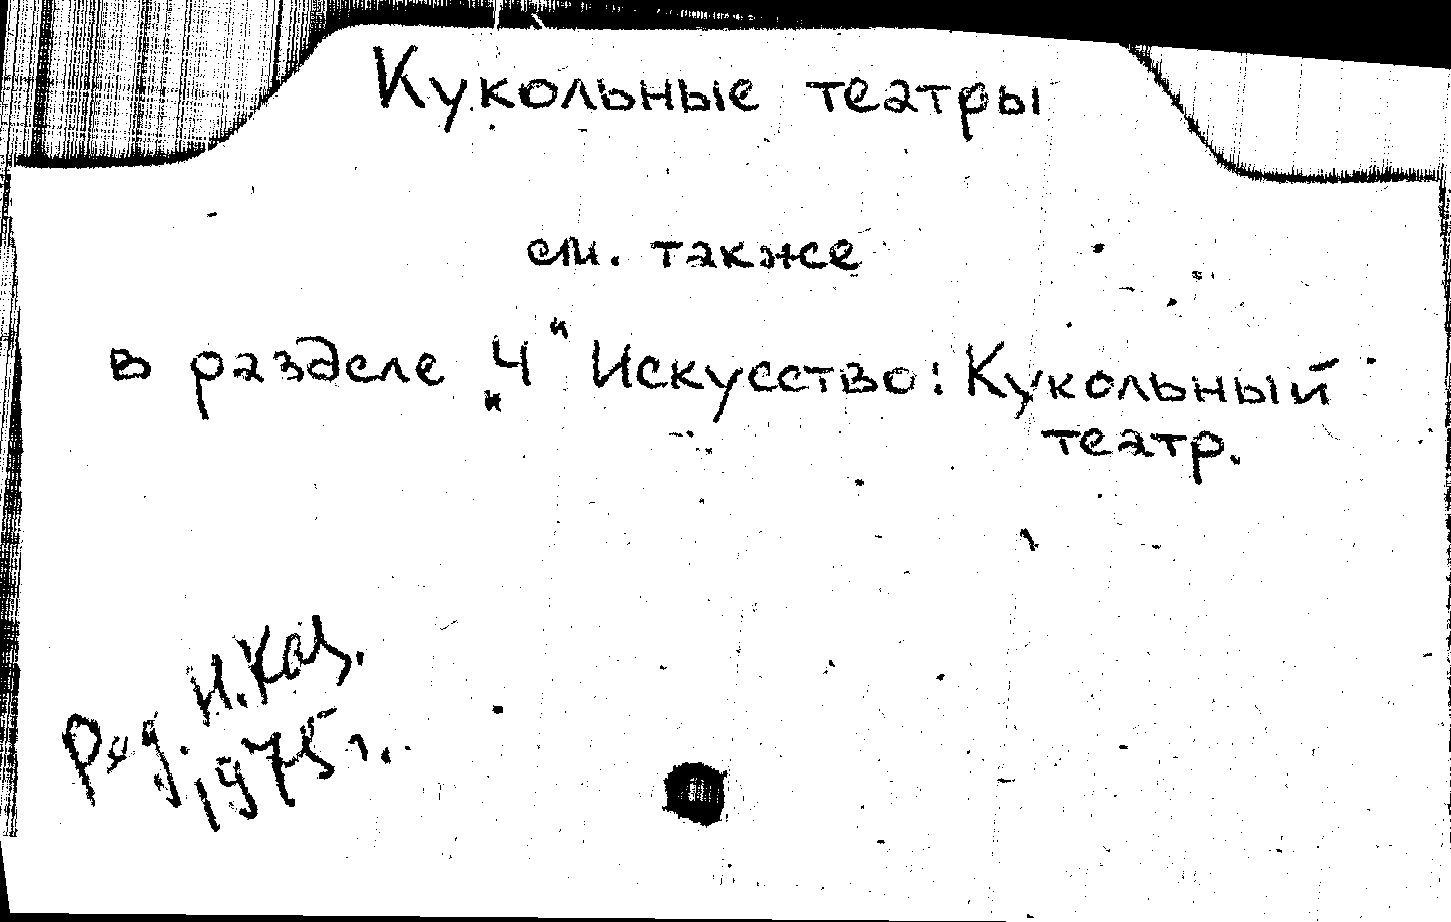 Кукольные театры
см. также
в разделе „Ч" Искусство: Кукольный
театр.
Ред. Н. Каз.
1975 г.